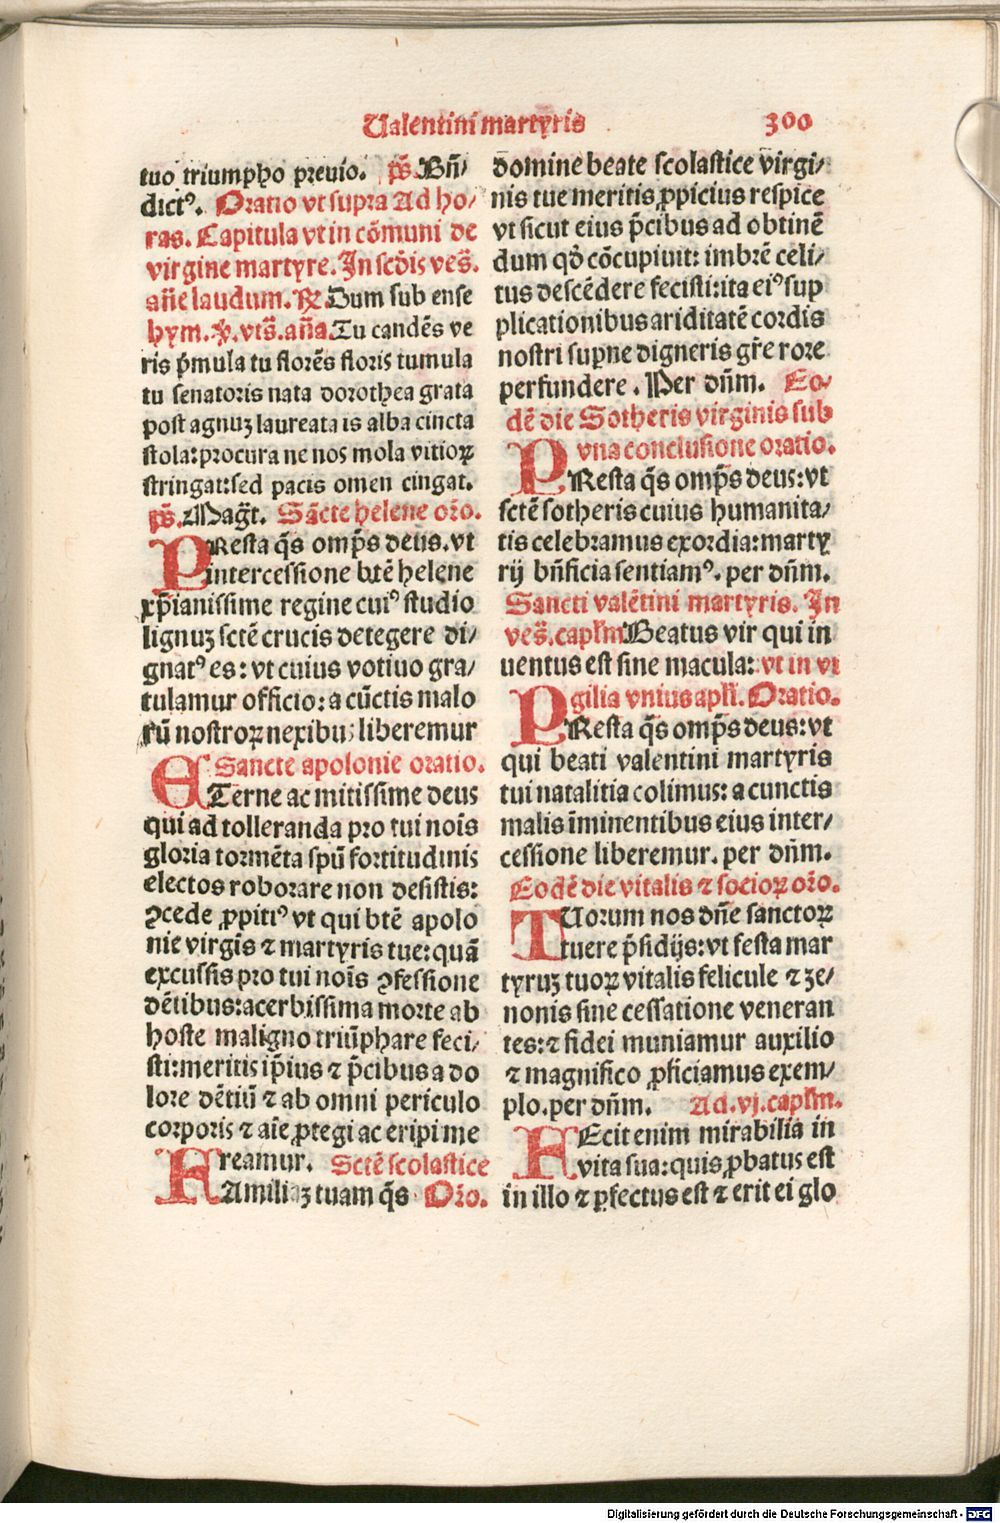 Valentini martyris 300
tuo triumpho preuio. ps̄. Bn̄⸗
dictꝰ. Oratio vt supra Ad ho⸗
ras. Capitula vt in cōmuni de
virgine martyre. In scd̄is ves̄.
an̄e laudum. ꝶ. Dum sub ense
hym. ꝟ. vts̄. an̄a. Tu candēs ve
ris p̄mula tu florēs floris tumula
tu senatoris nata dorothea grata
post agnuꝫ laureata is alba cincta
stola: procura ne nos mola vitioꝝ
stringat: sed pacis omen cingat.
ps̄. Maḡt. Sācte helene or̄o.
PResta q̄s omp̄s deus. vt
intercessione btē helene
xp̄ianissime regine cuiꝰ studio
lignuꝫ sctē crucis detegere di⸗
gnatꝰ es: vt cuius votiuo gra⸗
tulamur officio: a cūctis malo
rū nostroꝝ nexibuꝫ liberemur
Sancte apolonie oratio.
ETerne ac mitissime deus
qui ad tolleranda pro tui noīs
gloria tormēta spū fortitudinis
electos roborare non desistis:
ꝯcede ꝓpitiꝰ vt qui btē apolo
nie virgīs ⁊ martyris tue: quā
excussis pro tui noīs ꝯfessione
dētibus: acerbissima morte ab
hoste maligno triūphare feci⸗
sti: meritis ip̄ius ⁊ p̄cibus a do
lore dētiū ⁊ ab omni periculo
corporis ⁊ aīe ꝓtegi ac eripi me
reamur. Sctē scolastice
FAmiliaꝫ tuam q̄s Or̄o.
domine beate scolastice virgi⸗
nis tue meritis ꝓpicius respice
vt sicut eius p̄cibus ad obtinē
dum qd̄ cōcupiuit: imbrē celi⸗
tus descēdere fecisti: ita eiꝰ sup
plicationibus ariditatē cordis
nostri sup̄ne digneris gr̄e rore
perfundere. Per dn̄m. Eo⸗
dē die Sotheris virginis sub
vna conclusione oratio.
PResta q̄s omp̄s deus: vt
sctē sotheris cuius humanita⸗
tis celebramus exordia: marty
rij bn̄ficia sentiamꝰ. per dn̄m.
Sancti valētini martyris. In
ves̄. capl̄m Beatus vir qui in
uentus est sine macula: vt in vi
gilia vnius apl̄i. Oratio.
PResta q̄s omp̄s deus: vt
qui beati valentini martyris
tui natalitia colimus: a cunctis
malis īminentibus eius inter⸗
cessione liberemur. per dn̄m.
Eodē die vitalis ⁊ socioꝝ or̄o.
TUorum nos dn̄e sanctoꝝ
tuere p̄sidijs: vt festa mar
tyruꝫ tuoꝝ vitalis felicule ⁊ ze⸗
nonis sine cessatione veneran
tes: ⁊ fidei muniamur auxilio
⁊ magnifico ꝓficiamus exem⸗
plo. per dn̄m. Ad. vj. capl̄m.
FEcit enim mirabilia in
vita sua: quis ꝓbatus est
in illo ⁊ ꝑfectus est ⁊ erit ei glo
Digitalisierung gefördert durch die Deutsche Forschungsgemeinschaft - DFG